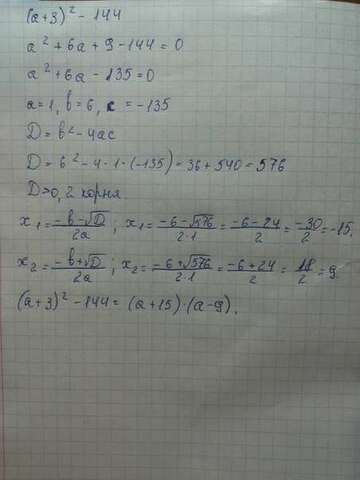 (a+3)² - 144
a² + 6a + 9 - 144 = 0
a² + 6a - 135 = 0
a = 1, b = 6, c = -135
D = b² - 4ac
D = 6² - 4 · 1 · (-135) = 36 + 540 = 576
D>0, 2 корня.
x₁ = (-b-√D)/2a ; x₁ = (-6-√576)/2·1 = (-6-24)/2 = -30/2 = -15.
x₂ = (-b+√D)/2a ; x₂ = (-6+√576)/2·1 = (-6+24)/2 = 18/2 = 9
(a+3)² - 144 = (a+15)·(a-9).